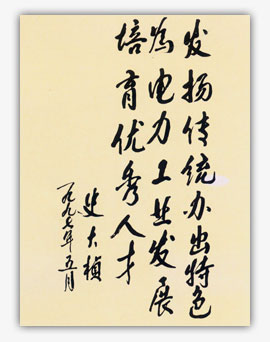 发扬传统办出特色
为电力工业发展
培育优秀人才
史大桢
一九九七年五月